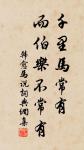 千里馬常有
而伯樂不常有
韓愈馬說詞典網集